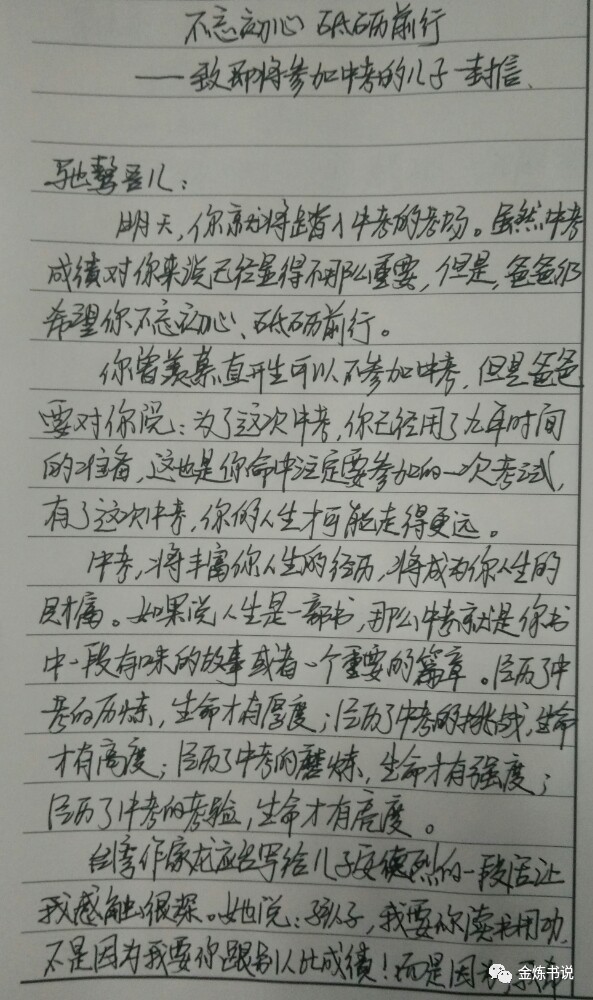 不忘初心 砥砺前行
——致即将参加中考的儿子一封信、
驰骜吾儿：
明天，你就将踏入中考的考场。虽然中考
成绩对你来说已经显得不那么重要，但是，爸爸仍
希望你不忘初心、砥砺前行。
你曾羡慕直升生可以不参加中考，但是爸爸
要对你说：为了这次中考，你已经用了九年时间
的准备，这也是你命中注定要参加的一次考试，
有了这次中考，你的人生才可能走得更远。
中考，将丰富你人生的经历，将成为你人生的
财富。如果说人生是一部书，那么中考就是你书
中一段有味的故事或者一个重要的篇章。经历了中
考的历炼，生命才有厚度；经历了中考的挑战，生命
才有高度；经历了中考的磨炼，生命才有强度；
经历了中考的考验，生命才有亮度。
台湾作家龙应台写给儿子安德烈的一段话让
我感触很深。她说：孩子，我要你读书用功，
不是因为我要你跟别人比成绩！而是因为
金炼书说